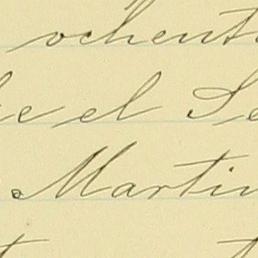 ochent
e el Se
Martin